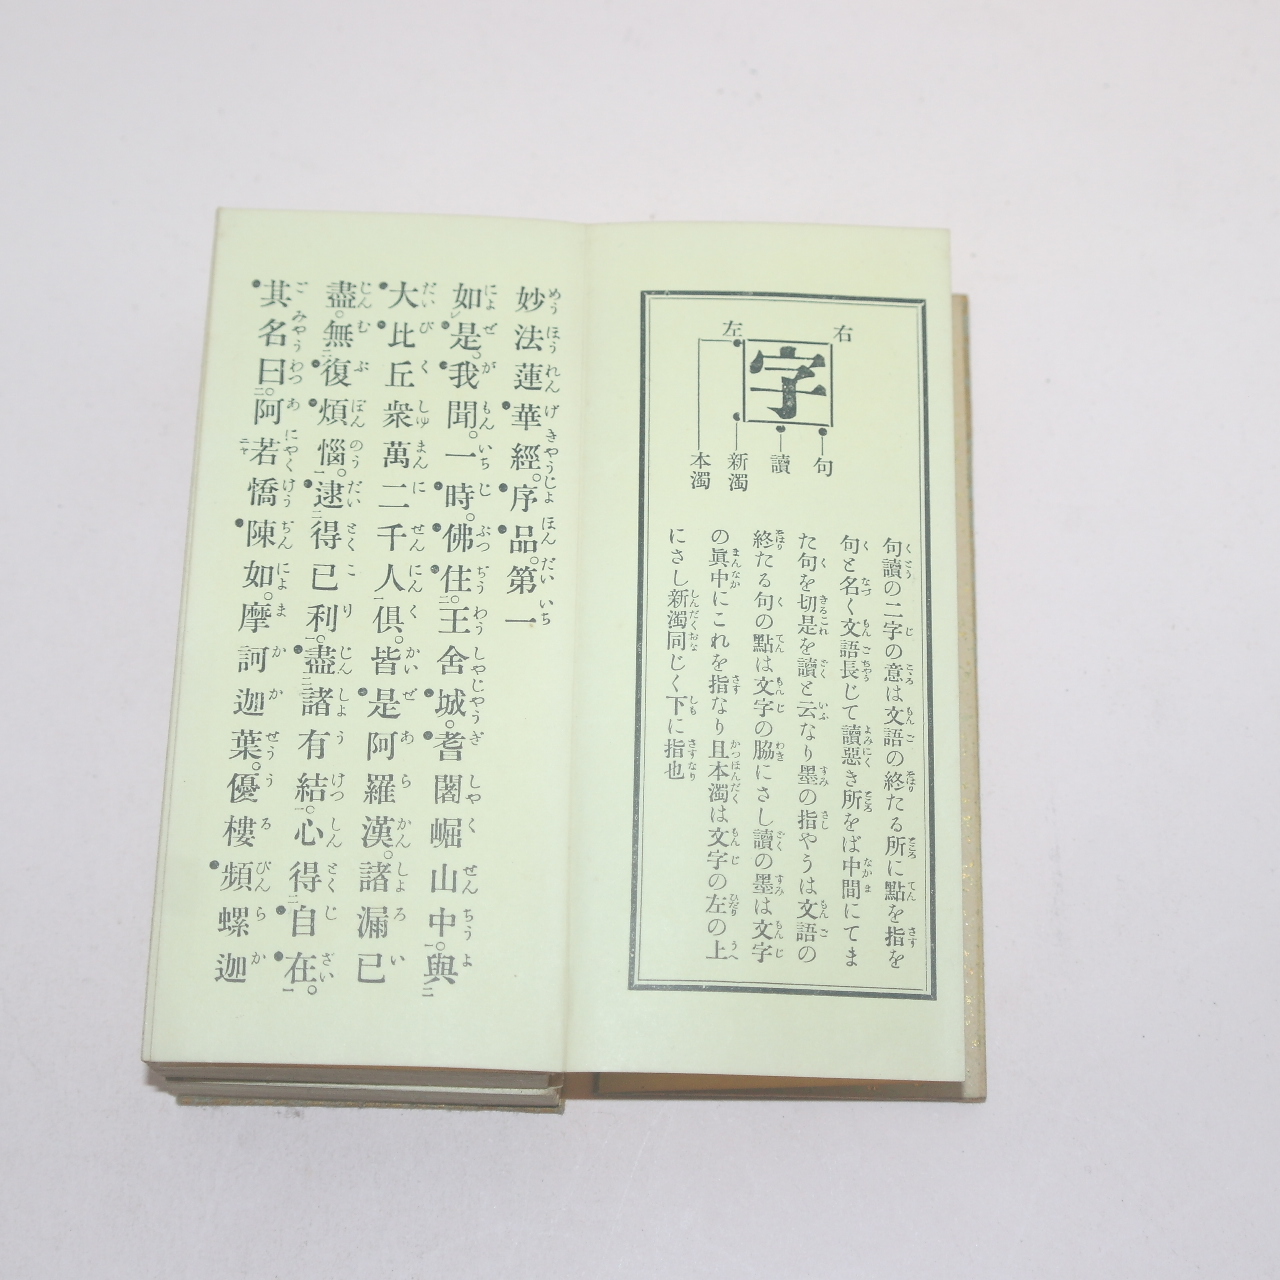 右
左
字
句
讀
新濁
本濁
句讀の二字の意は文語の終たる所に點を指を
句と名く文語長じて讀惡き所をば中間にてま
た句を切是を讀と云なり墨の指やうは文語の
終たる句の點は文字の脇にさし讀の墨は文字
の眞中にこれを指なり且本濁は文字の左の上
にさし新濁同じく下に指也
妙法蓮華經。序品。第一
如是。我聞。一時。佛住王舍城。耆闍崛山中。與
大比丘衆萬二千人俱。皆是阿羅漢。諸漏已
盡。無復煩惱。逮得已利。盡諸有結。心得自在。
其名曰。阿若憍陳如。摩訶迦葉。優樓頻螺迦